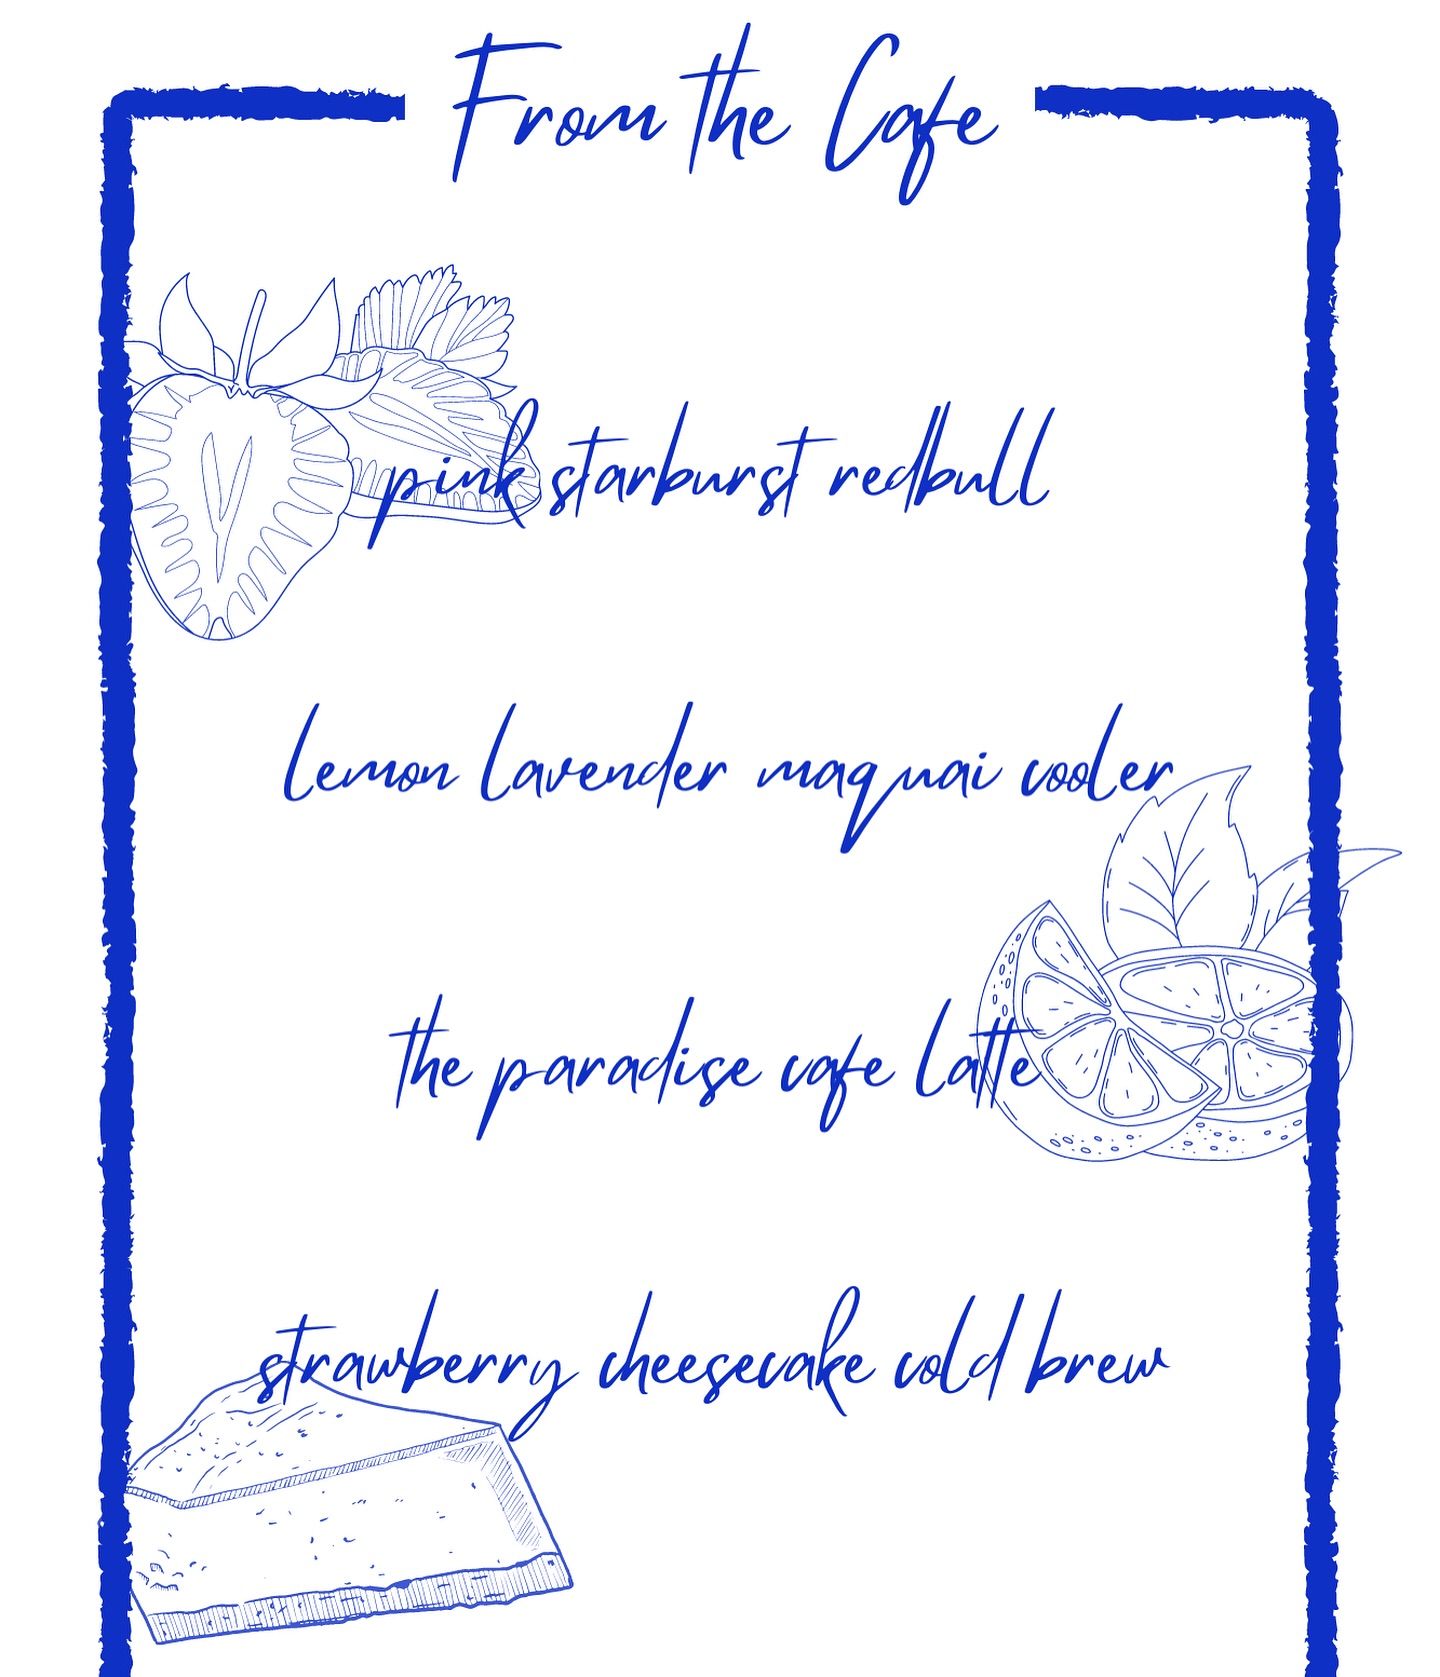 From the Cafe
pink starburst redbull
lemon lavender maquai cooler
the paradise cafe latte
strawberry cheesecake cold brew